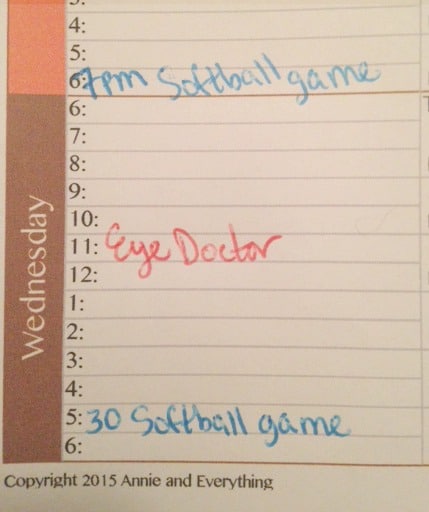 4:
5:
6: 7pm Softball game
6:
7:
8:
9:
10:
11: Eye Doctor
12:
1:
2:
3:
4:
5:30 Softball game
6:
Wednesday
Copyright 2015 Annie and Everything